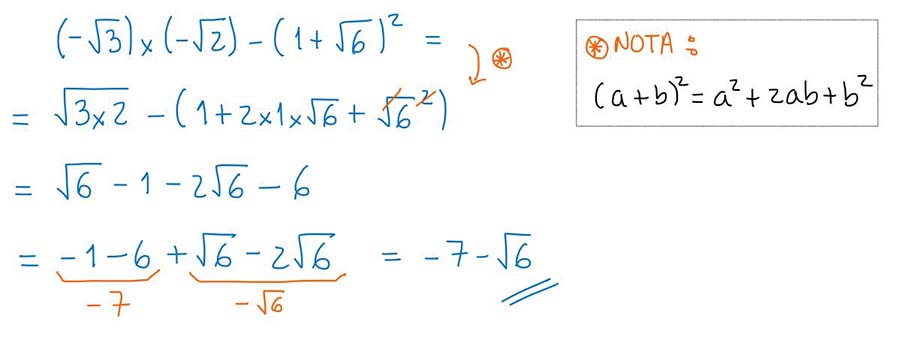 (-√3) × (-√2) - (1 + √6)² =
⊛
= √3×2 - (1 + 2×1×√6 + √6²)
= √6 - 1 - 2√6 - 6
= -1 - 6 + √6 - 2√6 = -7 - √6
-7 -√6
⊛ NOTA :
(a+b)² = a² + 2ab + b²